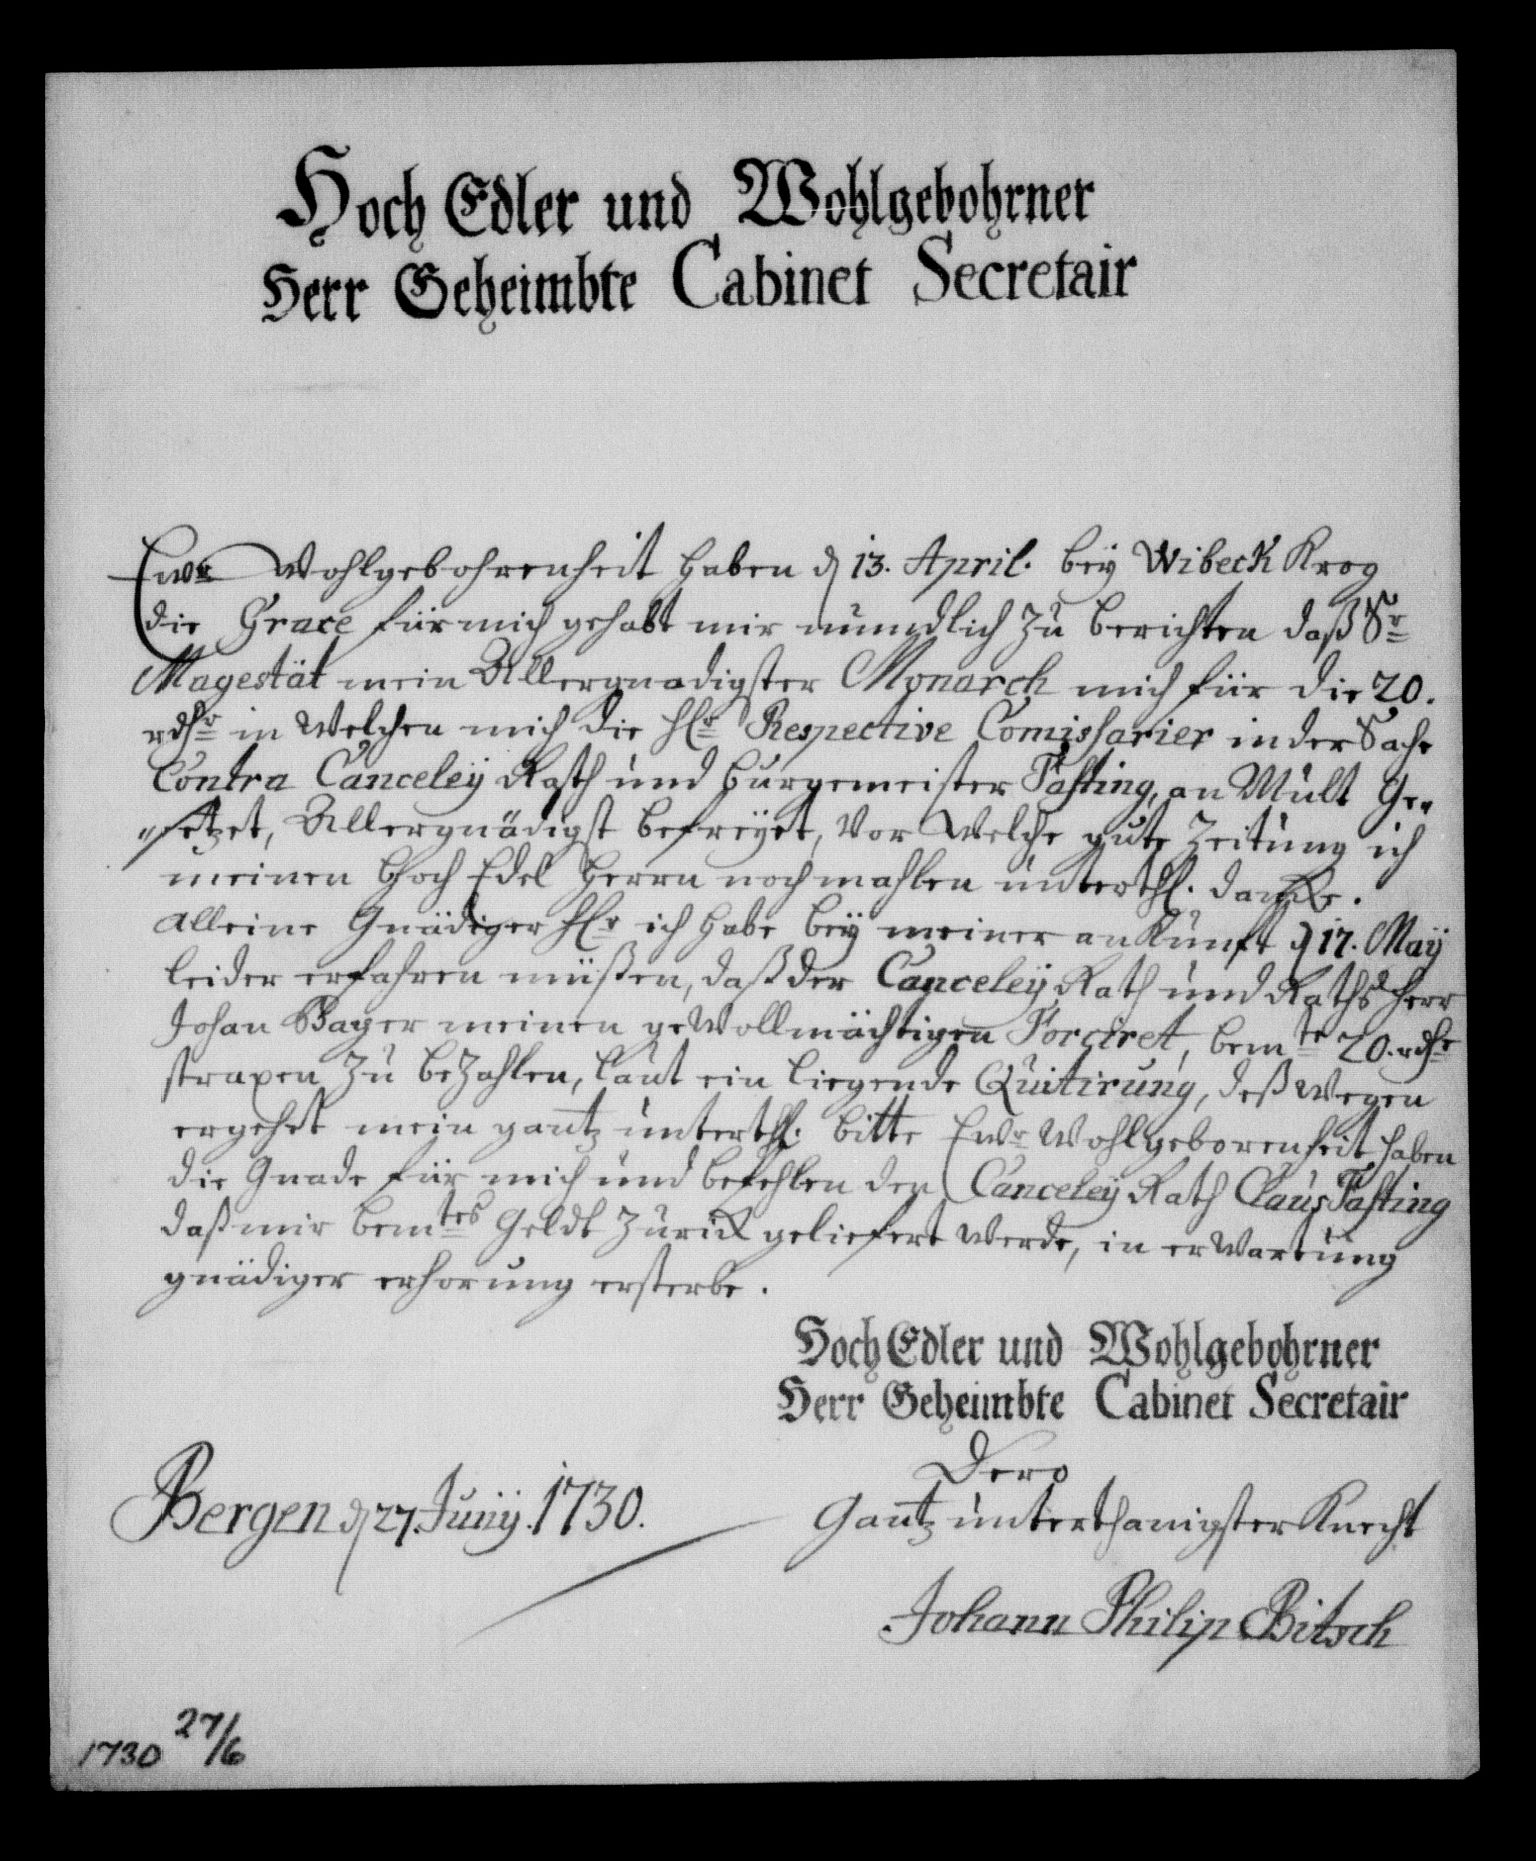 Hoch Edler und Wohlgebohrner
Herr Geheimbte Cabinet Secretair
Ewr Wohlgebohrenheit haben d 13. April. bey Wibeck Krog
die Grace für mich gehabt mir mündlich zu berichten daß Sr
Magestät mein Allergnadigster Monarch mich für die 20.
rdhr in Welchen mich die Hr Respective Comissarier in der Sache
Contra Canceleÿ Rath und burgemeister Fasting, an Mult Ge„
„setzet, Allergnädigst befreÿet, Vor Welche gute Zeitung ich
meinen Hoch Edel Herrn nochmahlen unterthl. dancke.
alleine Gnädiger Hr ich habe beÿ meiner ankunft d 17. Maÿ
leider erfahren müßen, daß der Canceleÿ Rath und Raths Herr
Johan Bager meinen geVollmächtigen Forciret, bemte 20. rdhr
straxen zu beZahlen, laut ein liegende Quitirung, deßwegen
ergehet mein gantz unterthl. bitte Ewr Wohlgeborenheit haben
die Gnade für mich und befehlen den Canceleÿ Rath Claus Fasting
daß mir bemtes Geldt zurück geliefert werde, in erwartung
gnädiger erhorung ersterbe.
Hoch Edler und Wohlgebohrner
Herr Geheimbte Cabinet Secretair
Dero
Gantz unterthanigster Knecht
Bergen d 27. Junÿ. 1730.
Johann Philip Bitsch
1730 27/6